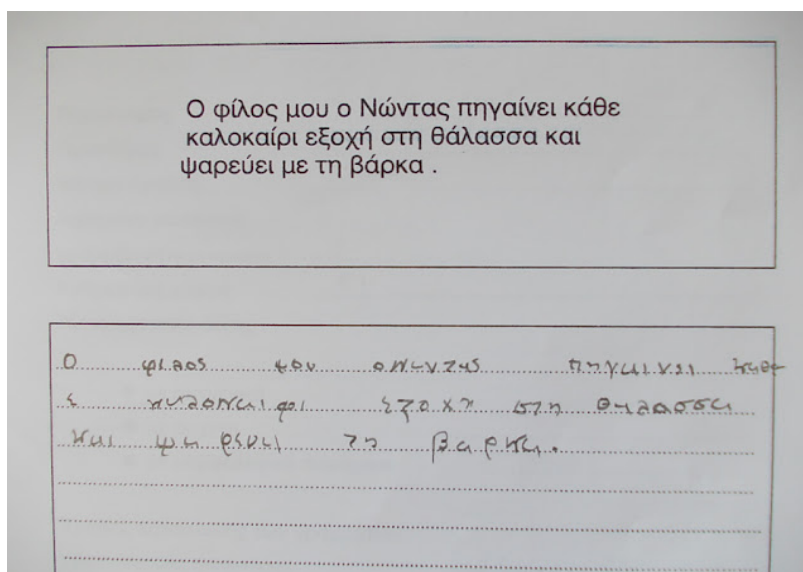 Ο φίλος μου ο Νώντας πηγαίνει κάθε
καλοκαίρι εξοχή στη θάλασσα και
ψαρεύει με τη βάρκα .
Ο φιλος μου πηγαινει καθε
ε καλοκαιρι εξοχη στη θαλασσα
και ψα ρευει τη βαρκα.